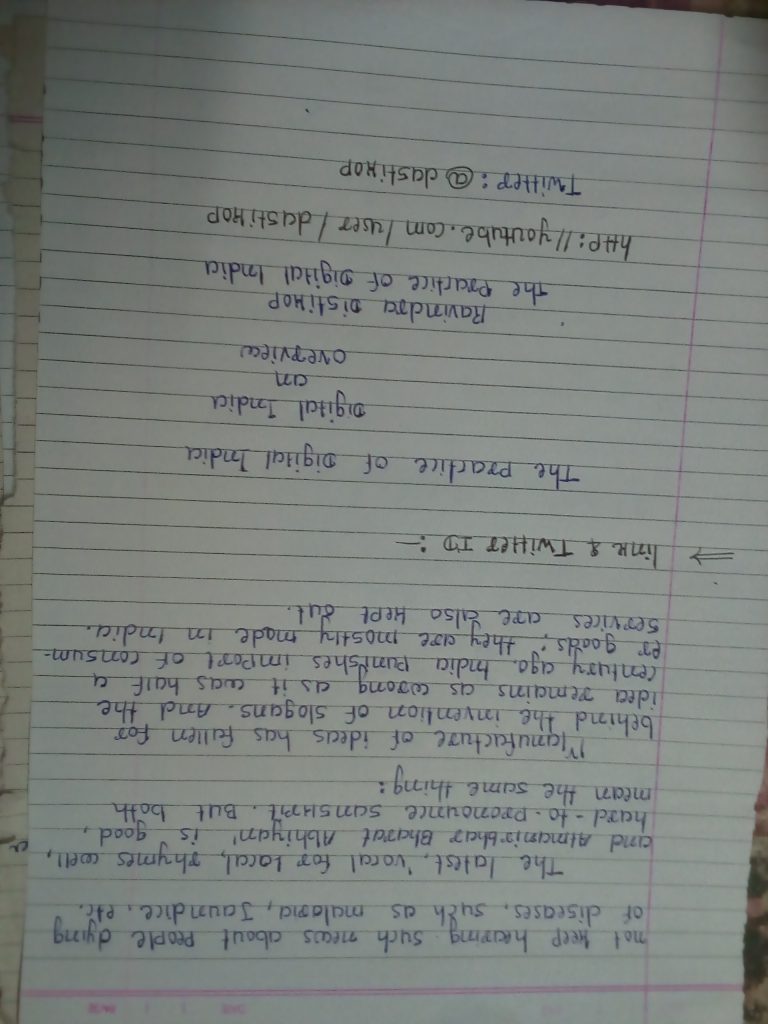 not keep hearing such news about people dying
of diseases, such as malaria, Jaundice, etc.
The latest, 'Vocal for Local, rhymes well,
and Atmanirbhar Bharat Abhiyan' is good,
hard-to-pronounce sanskrit. But both
mean the same thing:
Manufacture of ideas has fallen for
behind the invention of slogans. And the
idea remains as wrong as it was half a
century ago. India punishes import of consum-
er goods; they are mostly made in India.
services are also kept out.
⇒ link & Twitter ID :-
The Practice of Digital India
Digital India
an
overview
Ravindra Dastikop
the Practice of Digital India
http://youtube.com/user/dastikop
Twitter: @dastikop